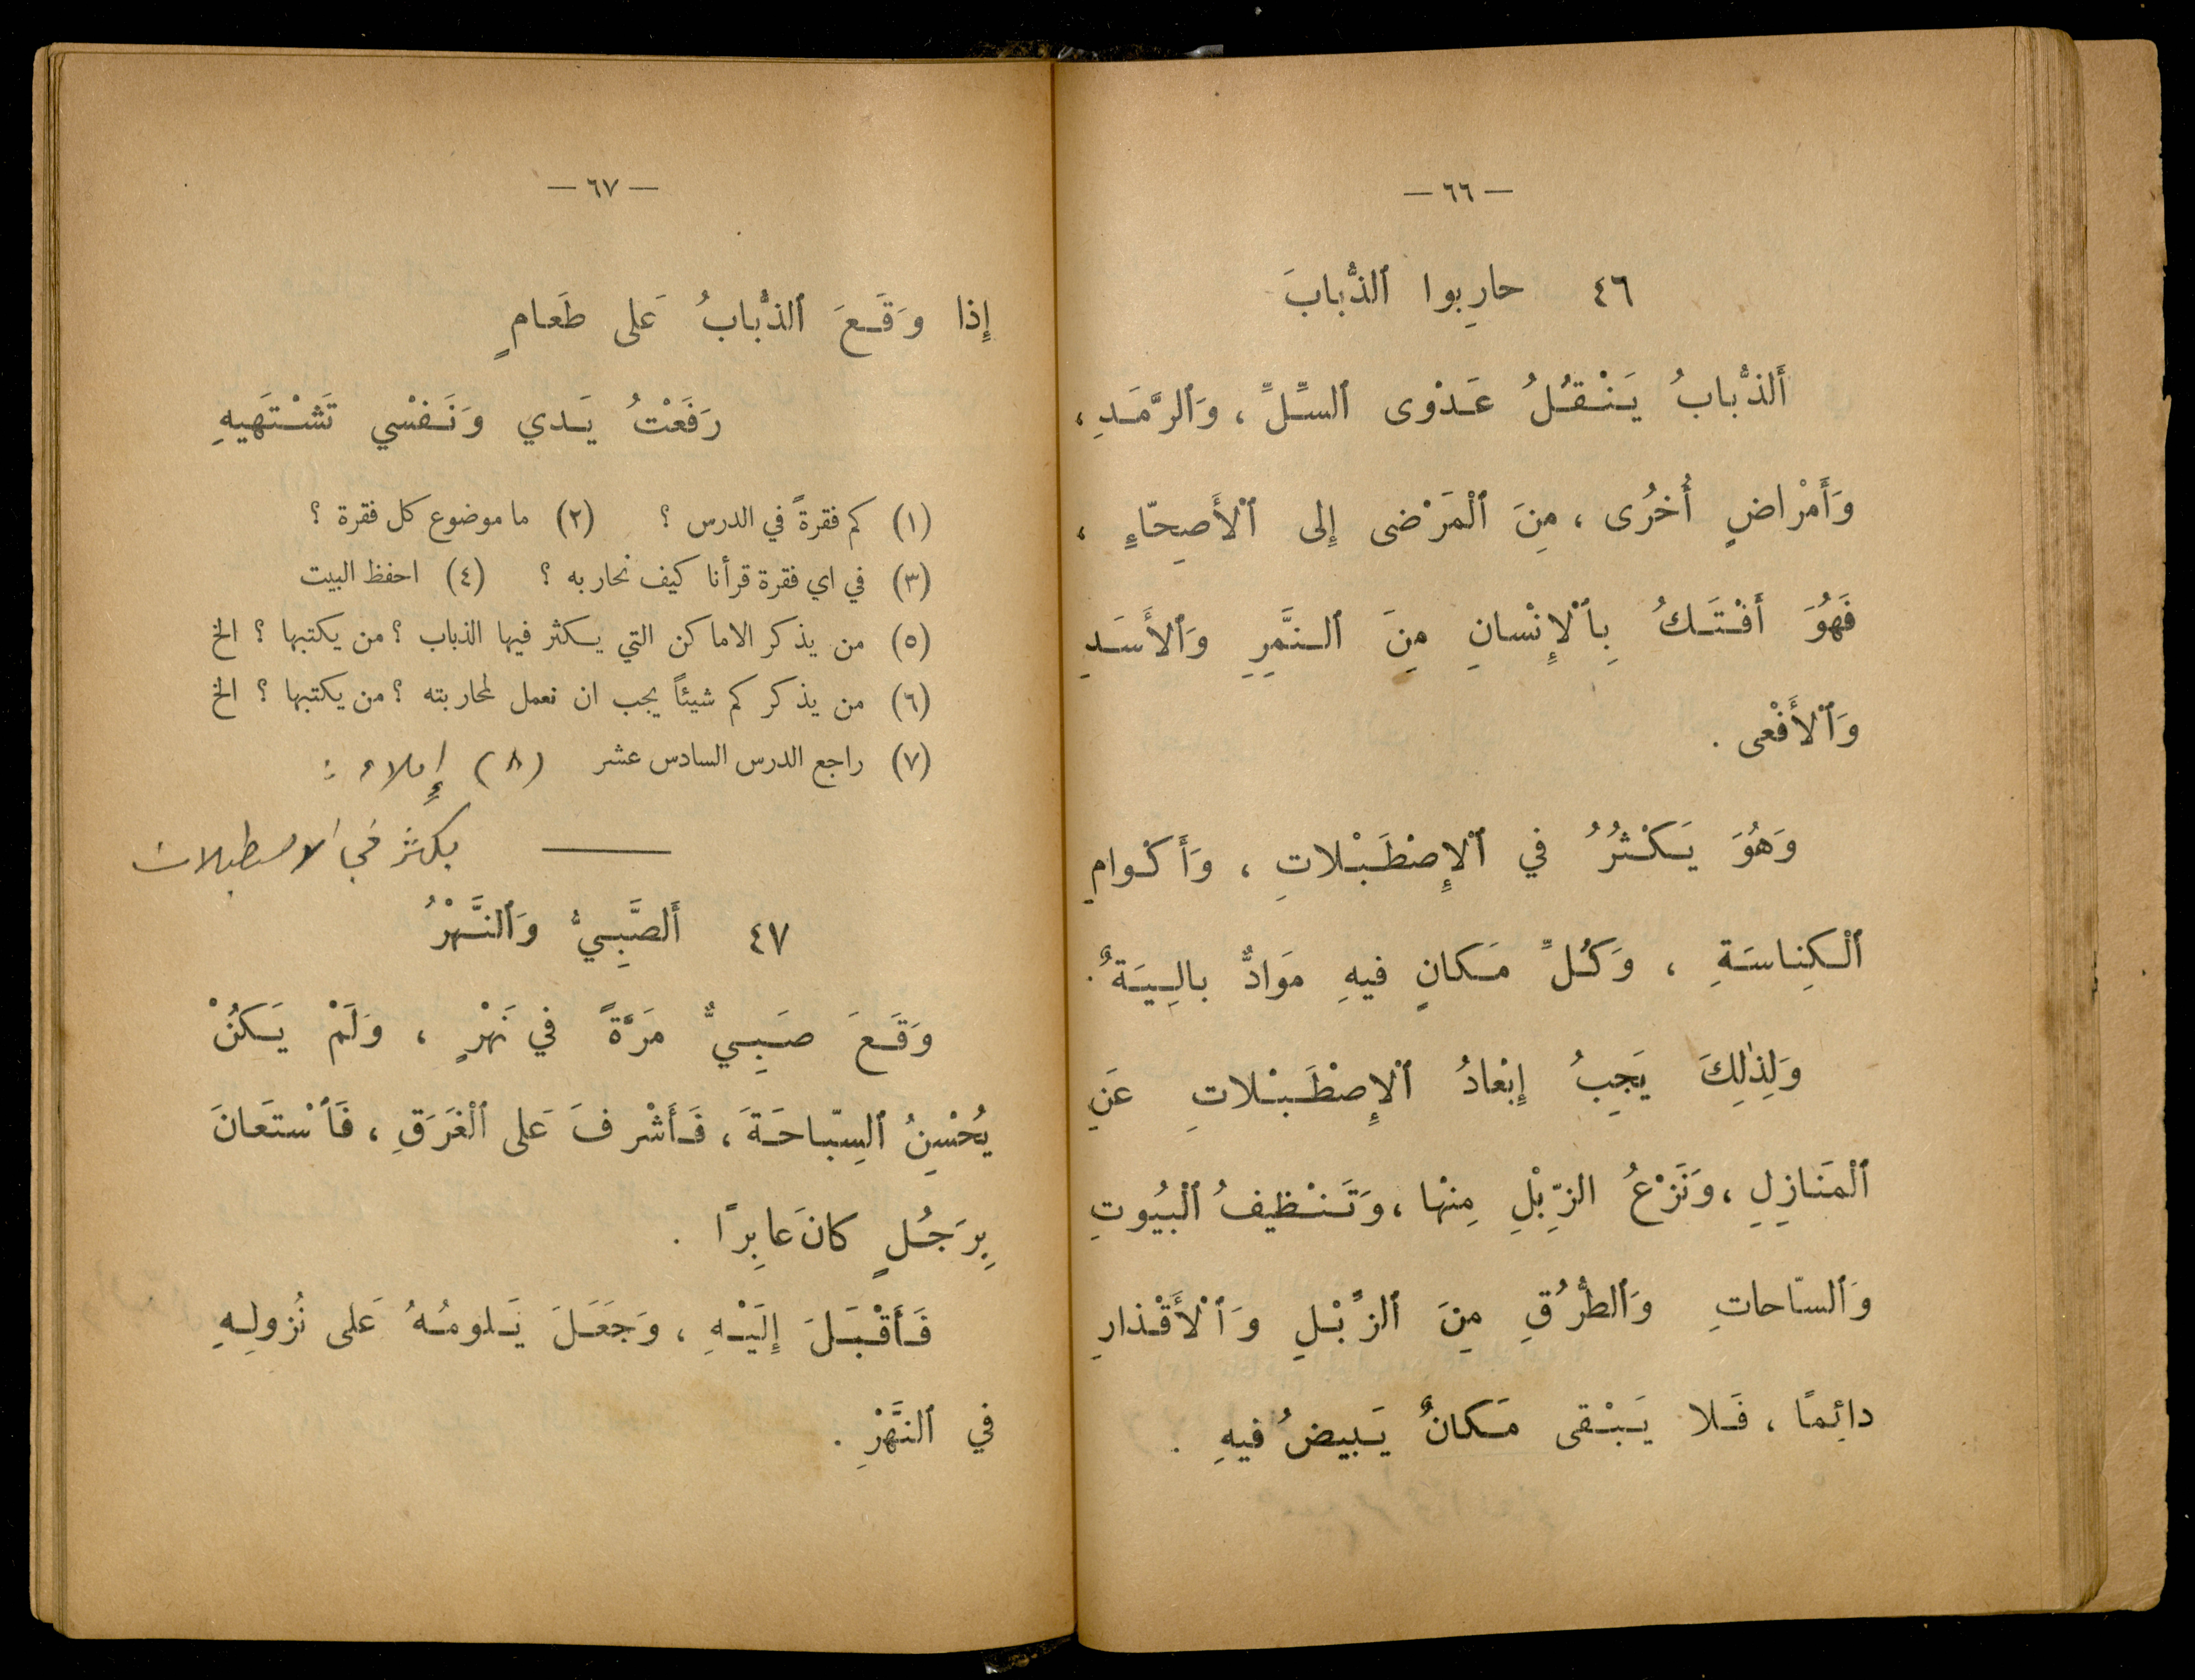 — ٦٦ —
٤٦ حارِبوا ٱلذُّبابَ
أَلذُّبابُ يَنْقُلُ عَدْوى ٱلسِّلِّ ، وَٱلرَّمَدِ ،
وَأَمْراضٍ أُخرُى ، مِنَ ٱلْمَرْضى إِلى ٱلْأَصِحّاءِ ،
فَهُوَ أَفْتَكُ بِٱلْإِنْسانِ مِنَ ٱلنَّمِرِ وَٱلأَسَدِ
وَٱلْأَفْعى .
وَهُوَ يَكْثُرُ في ٱلْإِصْطَبْلاتِ ، وَأَكْوامِ
ٱلْكِناسَةِ ، وَكُلِّ مَكانٍ فيهِ مَوَادٌّ بالِيَةٌ .
وَلِذٰلِكَ يَجِبُ إِبْعادُ ٱلْإِصْطَبْلاتِ عَنِ
ٱلْمَنازِلِ ، وَنَزْعُ الزِّبْلِ مِنْها ، وَتَنْظيفُ ٱلْبُيُوتِ
وَٱلسّاحاتِ وَٱلطُّرُقِ مِنَ ٱلزِّبْلِ وَٱلْأَقْذارِ
دائِمًا ، فَلا يَبْقى مَكانٌ يَبيضُ فيهِ .
— ٦٧ —
إِذا وَقَعَ ٱلذُّبابُ عَلى طَعامٍ
رَفَعْتُ يَدي وَنَفْسي تَشْتَهيهِ
(١) كم فقرةً في الدرس ؟ (٢) ما موضوع كل فقرة ؟
(٣) في اي فقرة قرأنا كيف نحاربه ؟ (٤) احفظ البيت
(٥) من يذكر الاماكن التي يكثر فيها الذباب ؟ من يكتبها ؟ الخ
(٦) من يذكر كم شيئاً يجب ان نعمل لمحاربته ؟ من يكتبها ؟ الخ
(٧) راجع الدرس السادس عشر (٨) إِملاءٌ :
يكثر في الاصطبلات
٤٧ أَلصَّبِيُّ وَٱلنَّهْرُ
وَقَعَ صَبِيٌّ مَرَّةً في نَهْرٍ ، وَلَمْ يَكُنْ
يُحْسِنُ ٱلسِّباحَةَ ، فَأَشْرفَ عَلى ٱلْغَرَقِ ، فَٱسْتَعانَ
بِرَجُلٍ كانَ عابِرًا .
فَأَقْبَلَ إِلَيْهِ ، وَجَعَلَ يَلومُهُ عَلى نُزولِهِ
في ٱلنَّهْرِ .